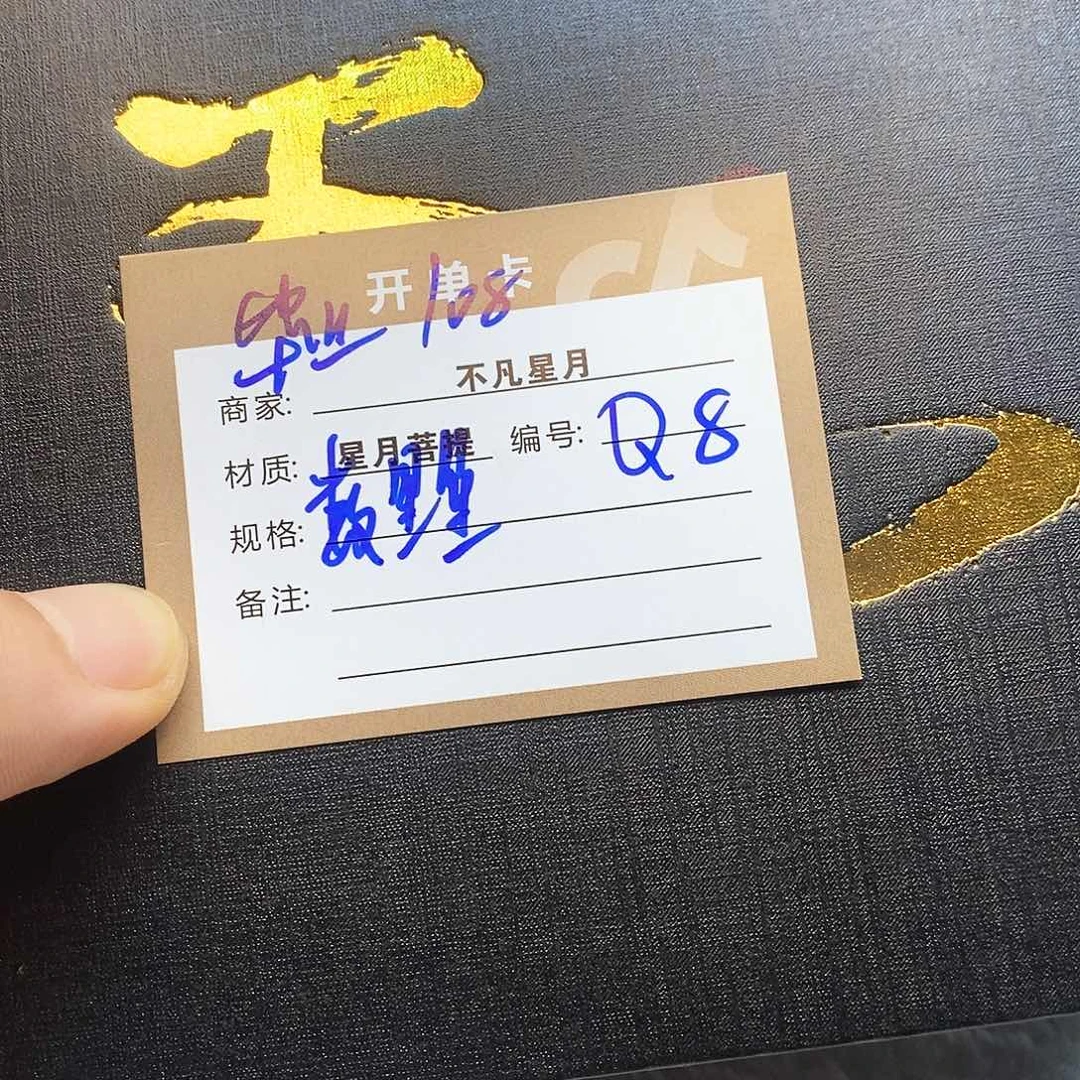 开单卡
108
商家: 不凡星月
材质: 星月菩提 编号: Q8
规格:
备注: